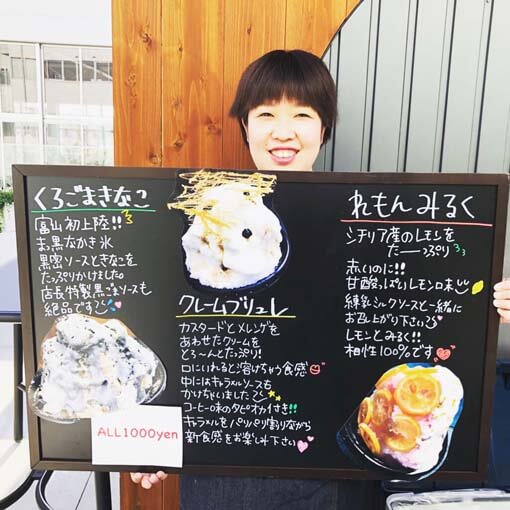 くろごまきなこ
富山初上陸!!
まっ黒なかき氷
黒蜜ソースときなこを
たっぷりかけました
店長特製黒ごまソースも
絶品です
ALL1000yen
クレームブリュレ
カスタードとメレンゲを
あわせたクリームを
とろ〜んとたっぷり!
口にいれると溶けちゃう食感
中にはキャラメルソースも
かけちゃいました
コーヒー味のタピオカ付き!!
キャラメルをパリパリ割りながら
新食感をお楽しみ下さい
れもんみるく
シチリア産のレモンを
たーーっぷり
赤いのに!!
甘酸っぱいレモン味
練乳ミルクソースと一緒に
お召上がり下さい
レモンとみるく!!
相性100%です